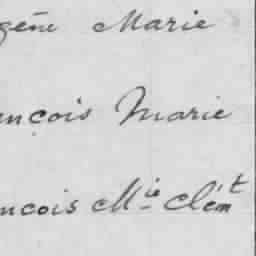 gène Marie
ençois Marie
ncois Mie Clémt